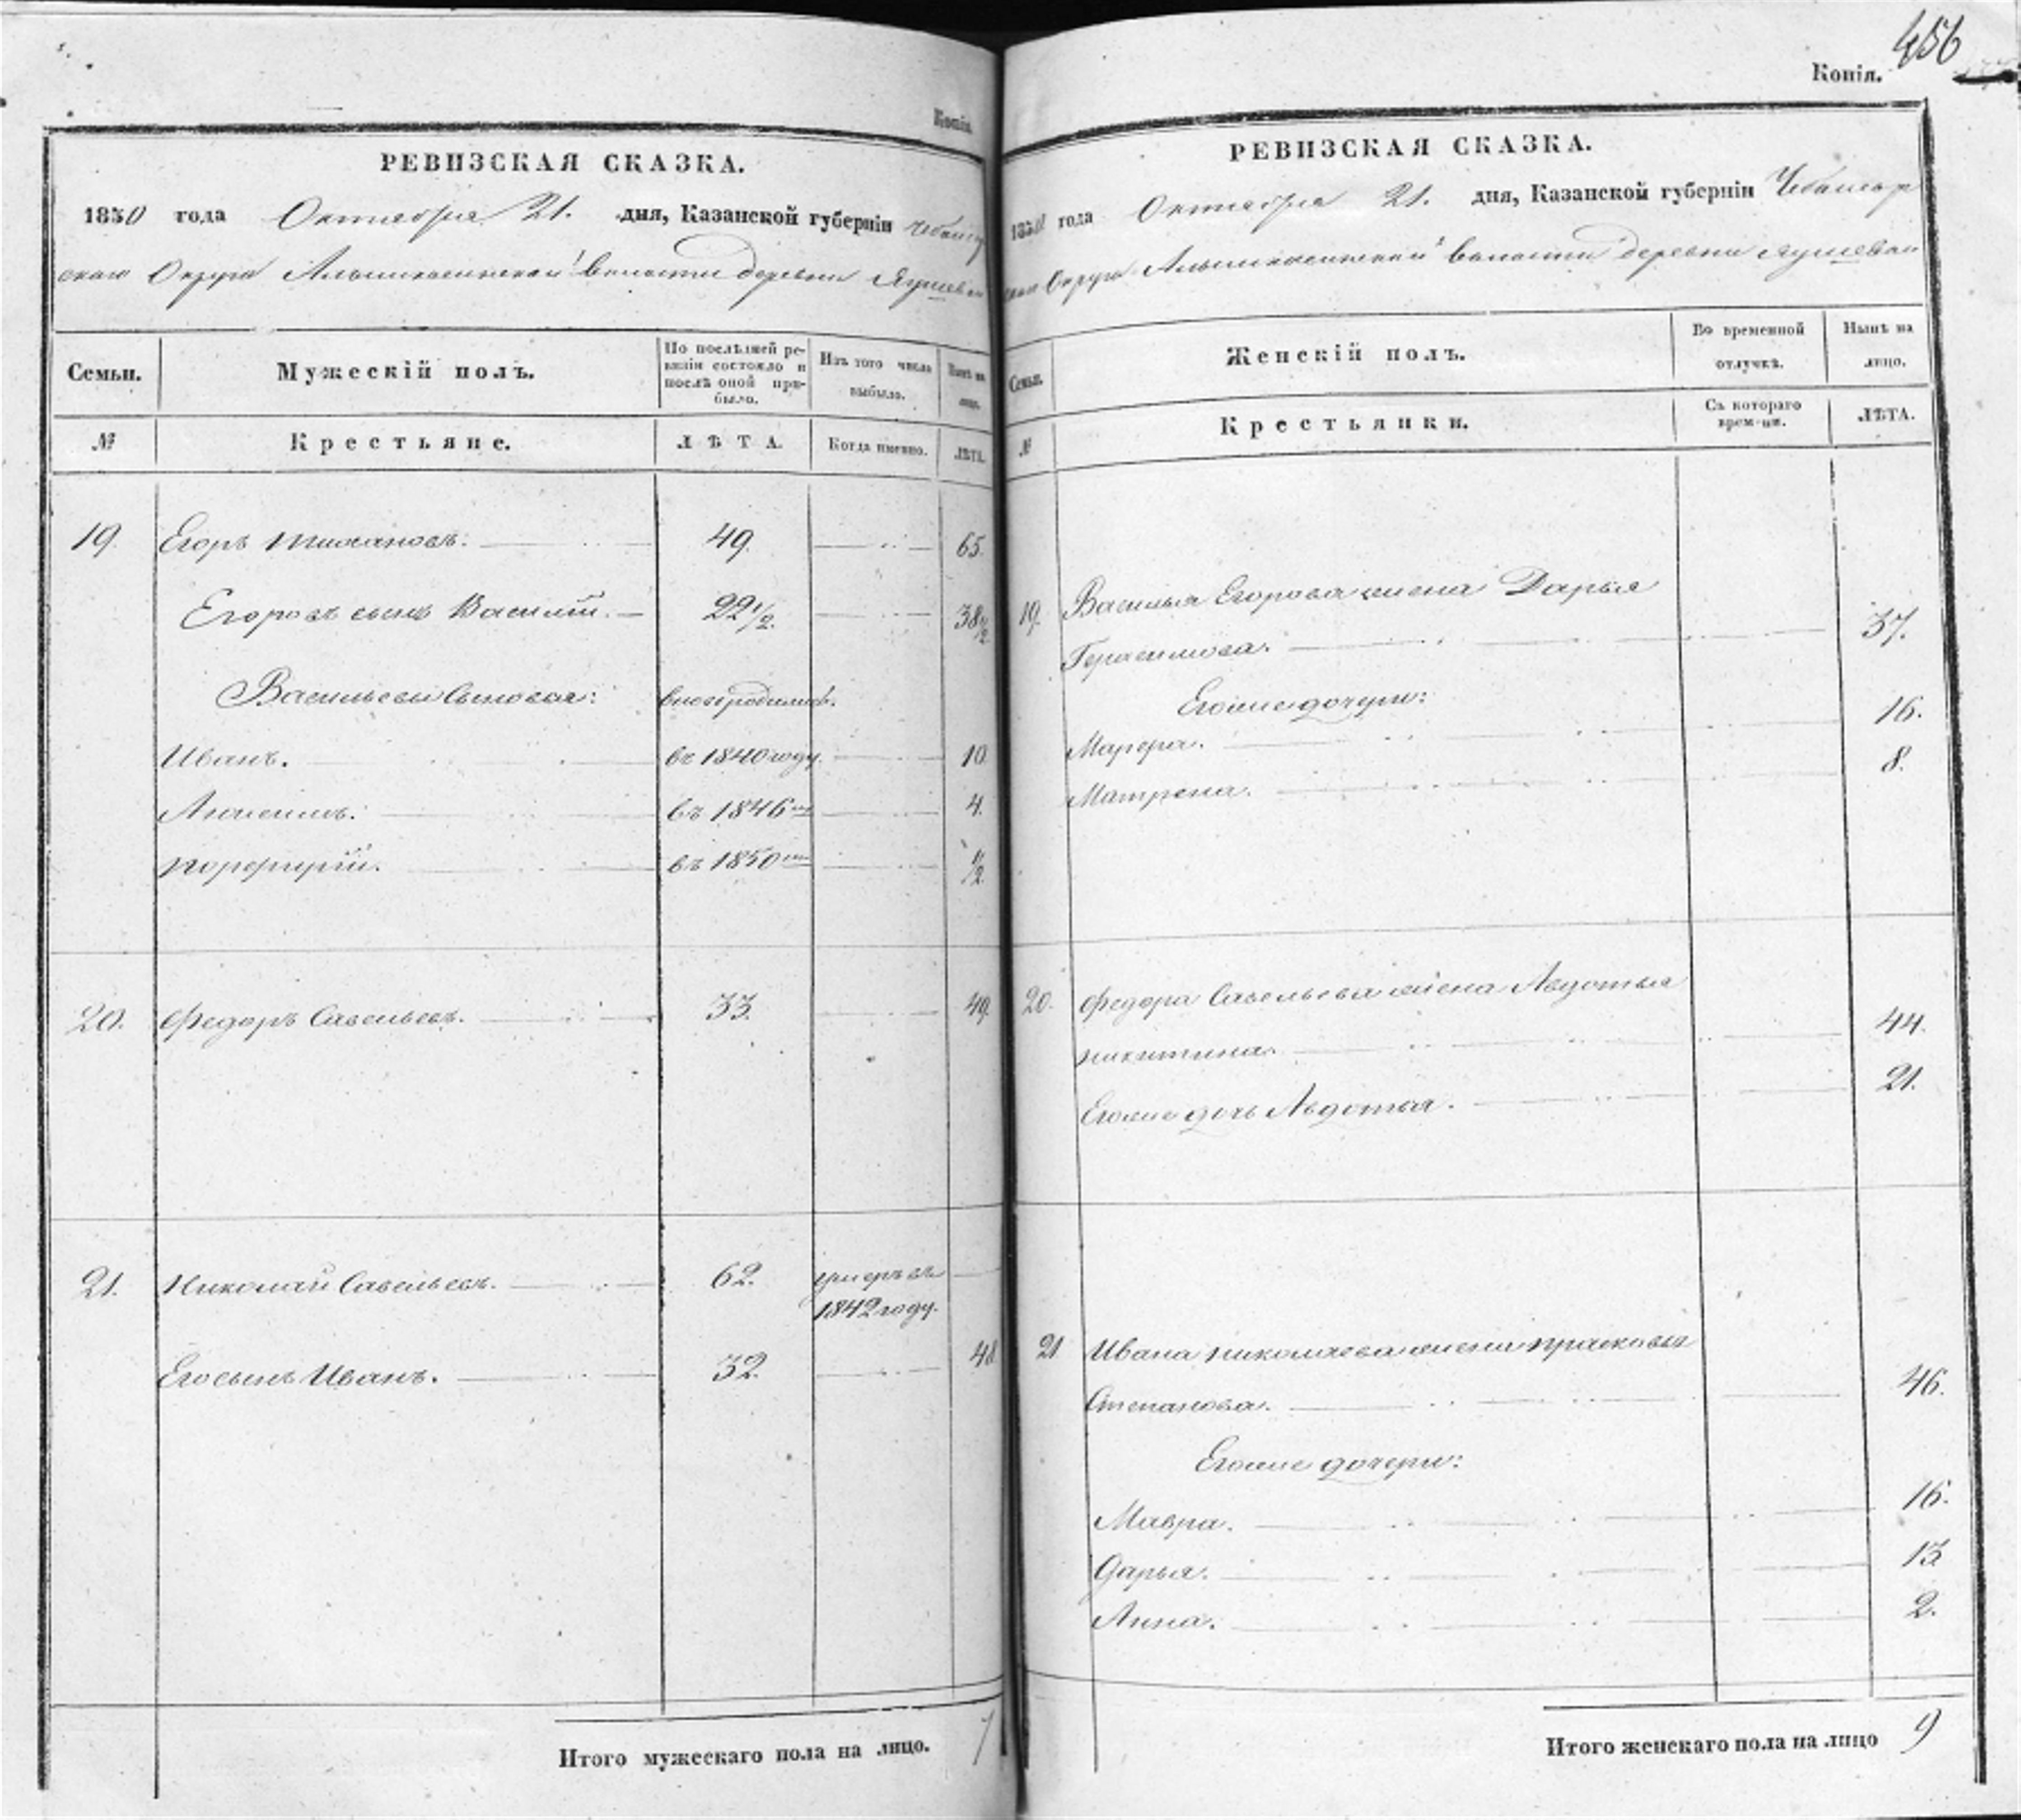 Копія.
РЕВИЗСКАЯ СКАЗКА.
1850 года Октября 21. дня, Казанской губерніи Чебоксар
скаго Округа волости деревни Яушевой
Семьи. Мужескій полъ. По послѣдней ре-
визіи состояло и
послѣ оной при-
было. Изъ того числа
выбыло. Нынѣ на
лицо.
№ Крестьяне. ЛѢТА. Когда именно. ЛѢТА.
19. Егоръ 49. 65.
Егоровъ сынъ Василій. 22 1/2. 38 1/2
Васильевы сыновья: вновь родились.
Иванъ. въ 1840 году. 10
въ 1846 4.
Порфирій. въ 1850 1/2.
20. Федоръ Савельевъ. 33. 49.
21. Николай Савельевъ. 62. умеръ въ
1842 году.
Его сынъ Иванъ. 32. 48
Итого мужескаго пола на лицо. 7
456
Копія.
РЕВИЗСКАЯ СКАЗКА.
1850 года Октября 21. дня, Казанской губерніи Чебоксар
скаго Округа волости деревни Яушевой
Семьи. Женскій полъ. Во временной
отлучкѣ. Нынѣ на
лицо.
№ Крестьянки. Съ котораго
врем-ни. ЛѢТА.
19. Василья Егорова жена Дарья
Герасимова. 37.
Егоже дочери: 16.
Марфа. 8.
Матрена.
20. Федора Савельева жена Авдотья
Никитина. 44.
21.
Егоже дочь Авдотья.
21 Ивана Николаева жена Прасковья
Степанова. 46.
Егоже дочери:
Мавра. 16.
Дарья. 13
Анна. 2.
Итого женскаго пола на лицо 9